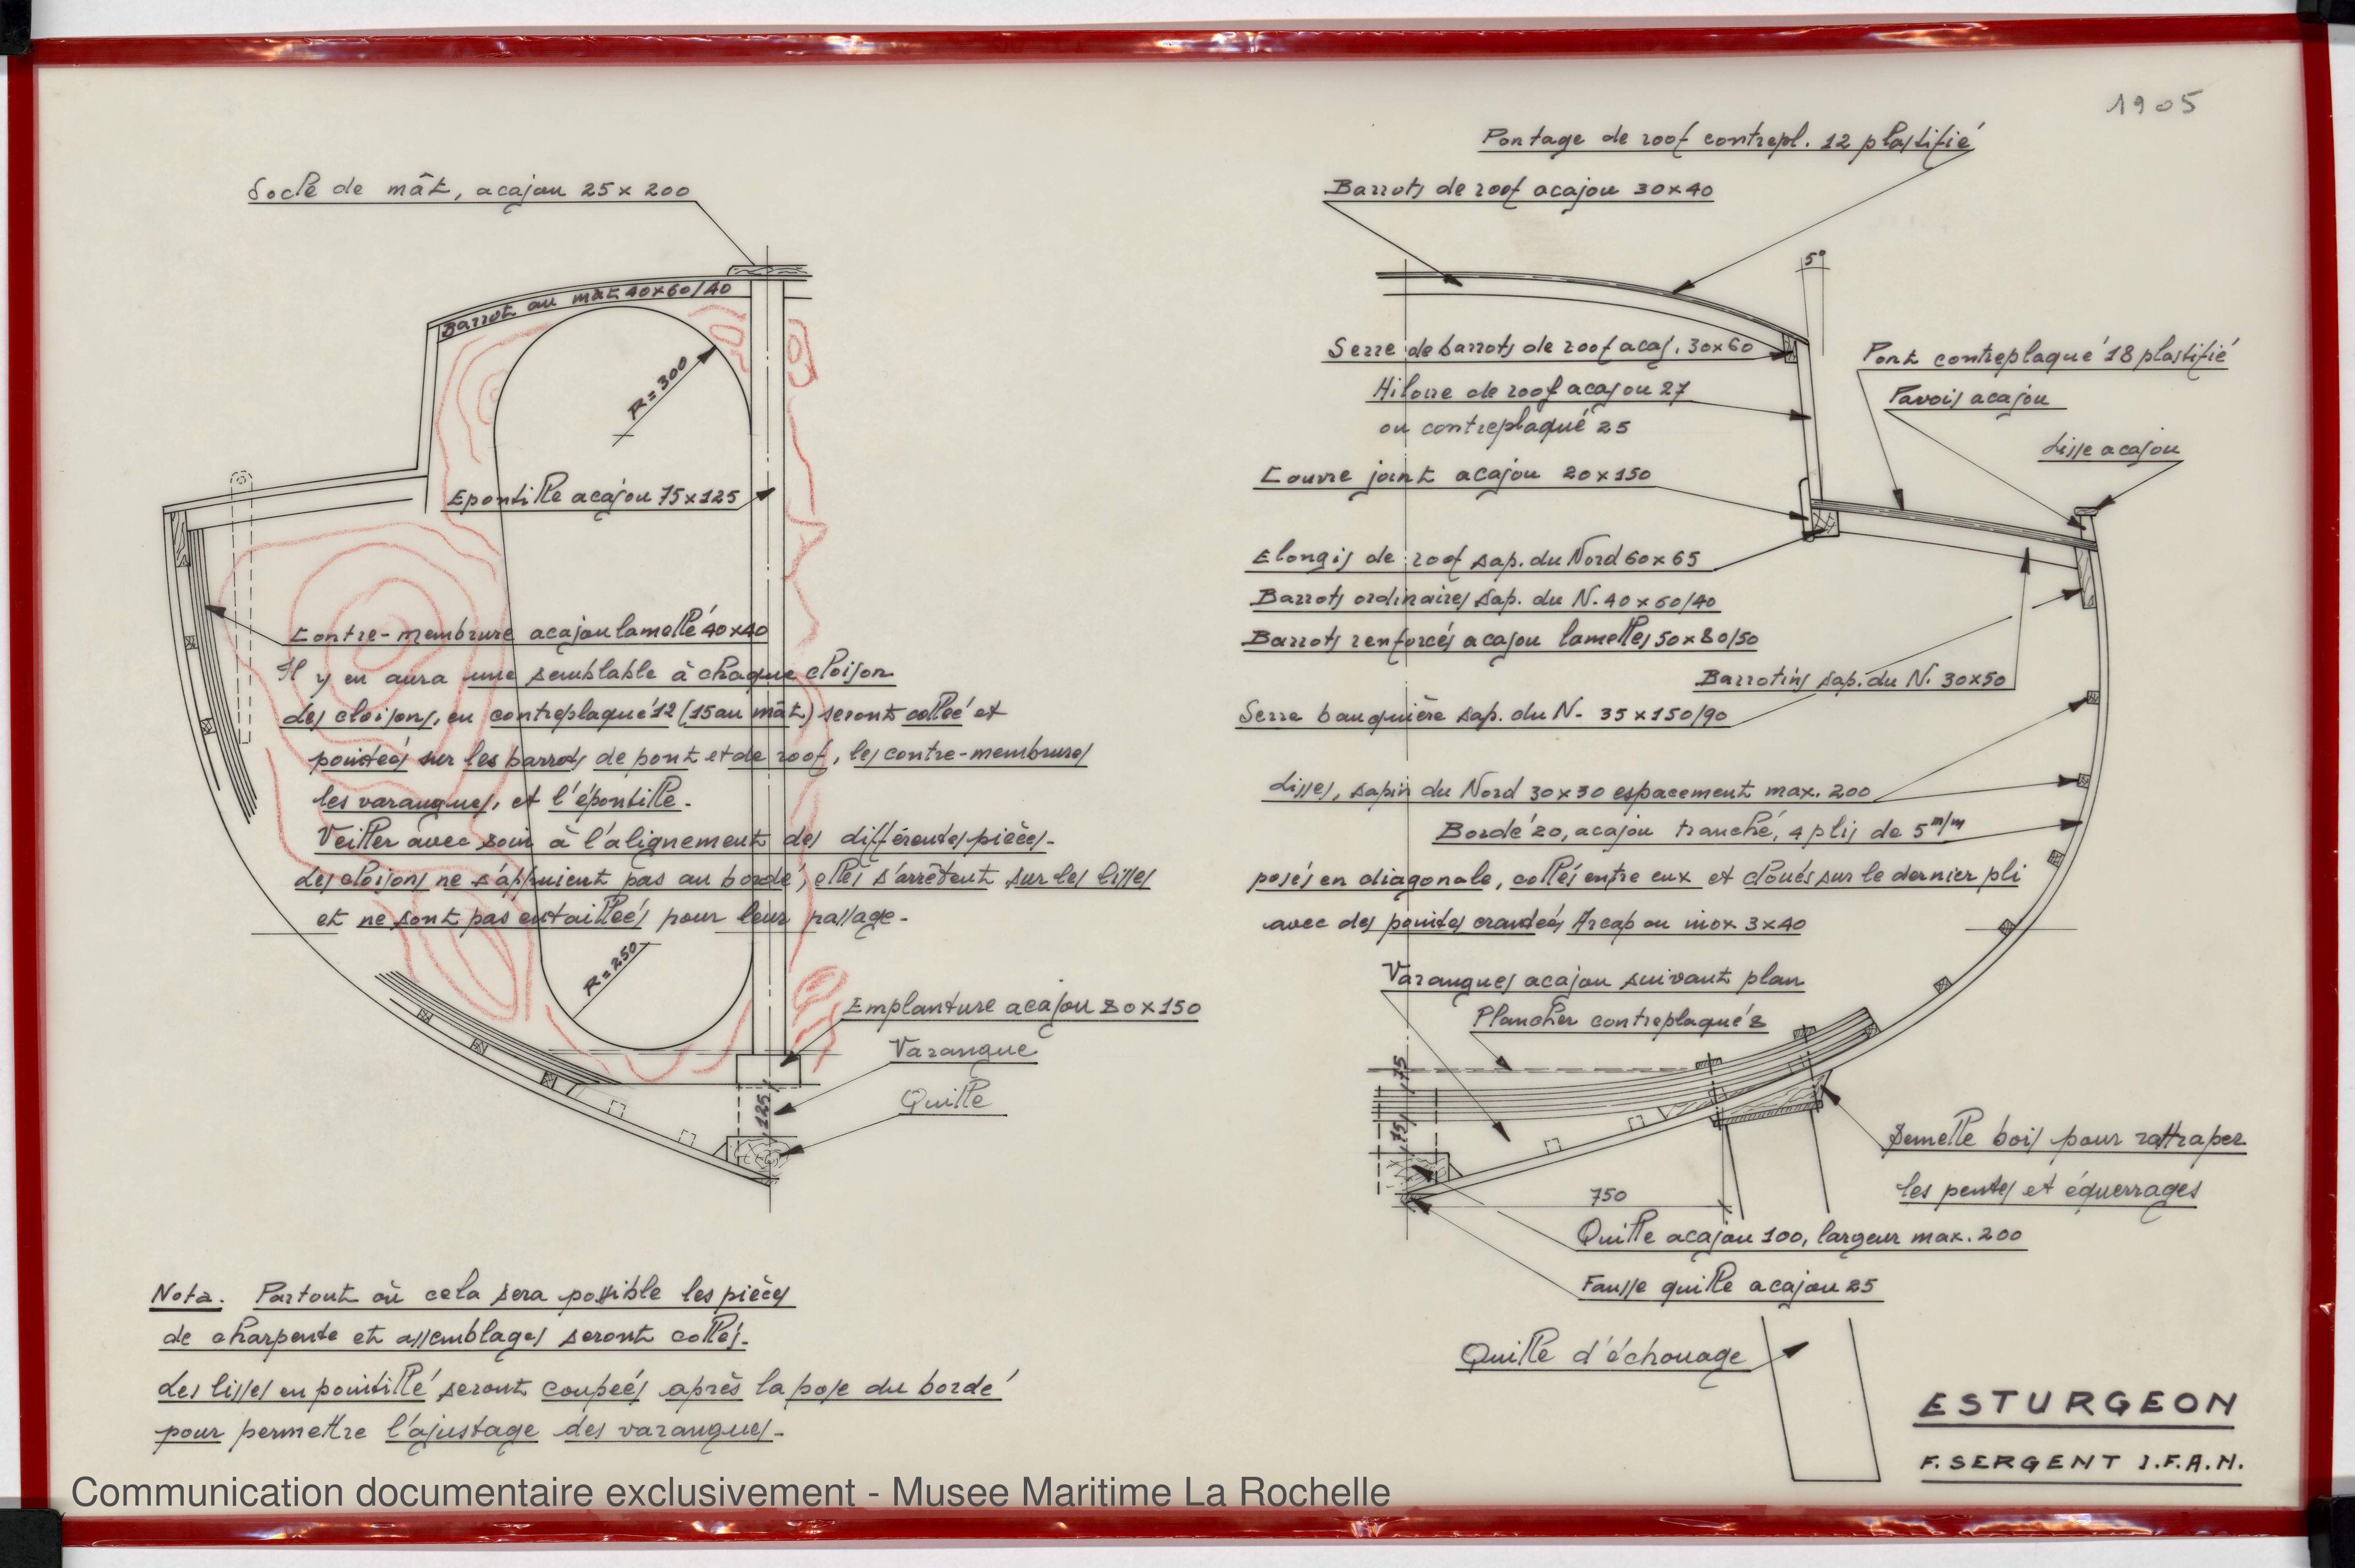 1905
Socle de mât, acajou 25 x 200
Barrot au mât 40x60/40
R=300
Epontille acajou 75x125
Contre-membrure acajou lamellé 40x40
Il y en aura une semblable à chaque cloison
Les cloisons, en contreplaqué 12 (15 au mât) seront collée et
pointeés sur les barrots de pont et de roof, les contre-membrures
les varangues, et l'épontille.
Veiller avec soin à l'alignement des différentes pièces.
Les cloisons ne s'appuient pas au bordé, elles s'arrêtent sur les lisses
et ne sont pas entailleés pour leur passage.
R=250
Emplanture acajou 80x150
Varangue
125
Quille
Nota. Partout où cela sera possible les pièces
de charpente et assemblages seront collés.
Les lisses en pointillé seront coupeés après la pose du bordé
pour permettre l'ajustage des varangues.
Pontage de roof contrepl. 12 plastifié
Barrots de roof acajou 30x40
5°
Serre de barrots de roof acaj. 30x60
Hiloire de roof acajou 27
ou contreplaqué 25
Pont contreplaqué 18 plastifié
Pavois acajou
Lisse acajou
Couvre joint acajou 20x150
Elongis de roof sap. du Nord 60x65
Barrots ordinaires sap. du N. 40x60/40
Barrots renforcés acajou lamelles 50x80/50
Barrotins sap. du N. 30x50
Serre bauquière sap. du N. 35x150/90
Lisses, sapin du Nord 30x30 espacement max. 200
Bordé 20, acajou tranché, 4 plis de 5 m/m
posés en diagonale, collés entre eux et cloués sur le dernier pli
avec des pointes cranteés Arcap ou inox 3x40
Varangues acajou suivant plan
Plancher contreplaqué 8
75
75
Semelle bois pour rattraper
les pentes et équerrages
750
Quille acajou 100, largeur max. 200
Fausse quille acajou 25
Quille d'échouage
ESTURGEON
F. SERGENT I.F.A.N.
Communication documentaire exclusivement - Musee Maritime La Rochelle